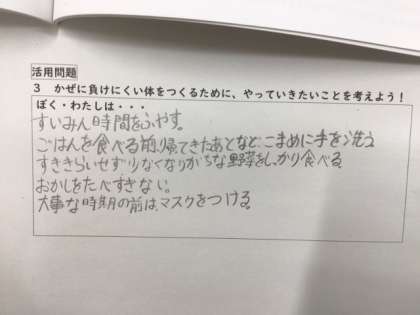 活用問題
3 かぜに負けにくい体をつくるために、やっていきたいことを考えよう！
ぼく・わたしは・・・
すいみん時間をふやす。
ごはんを食べる前、帰てきたあとなど、こまめに手を洗う
すききらいせず少なくなりがちな野菜をしっかり食べる
おかしをたべすぎない。
大事な時期の前は、マスクをつける。